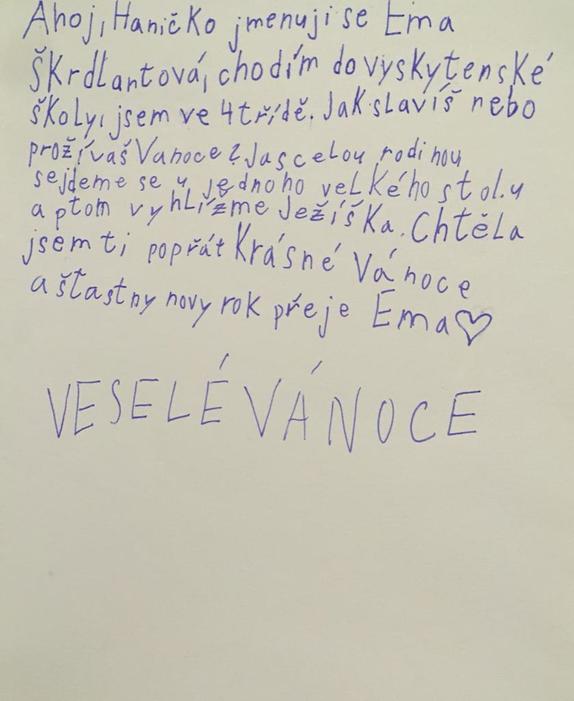 Ahoj, Haničko jmenuji se Ema
Škrdlantová, chodím do vyskytenské
školy, jsem ve 4 třídě. Jak slavíš nebo
prožíváš Vanoce? Ja s celou rodinou
sejdeme se u jednoho velkého stolu
a ptom vyhlížme Ježíška. Chtěla
jsem ti popřát Krásné Vánoce
a šťastny novy rok přeje Ema♡
VESELÉ VÁNOCE